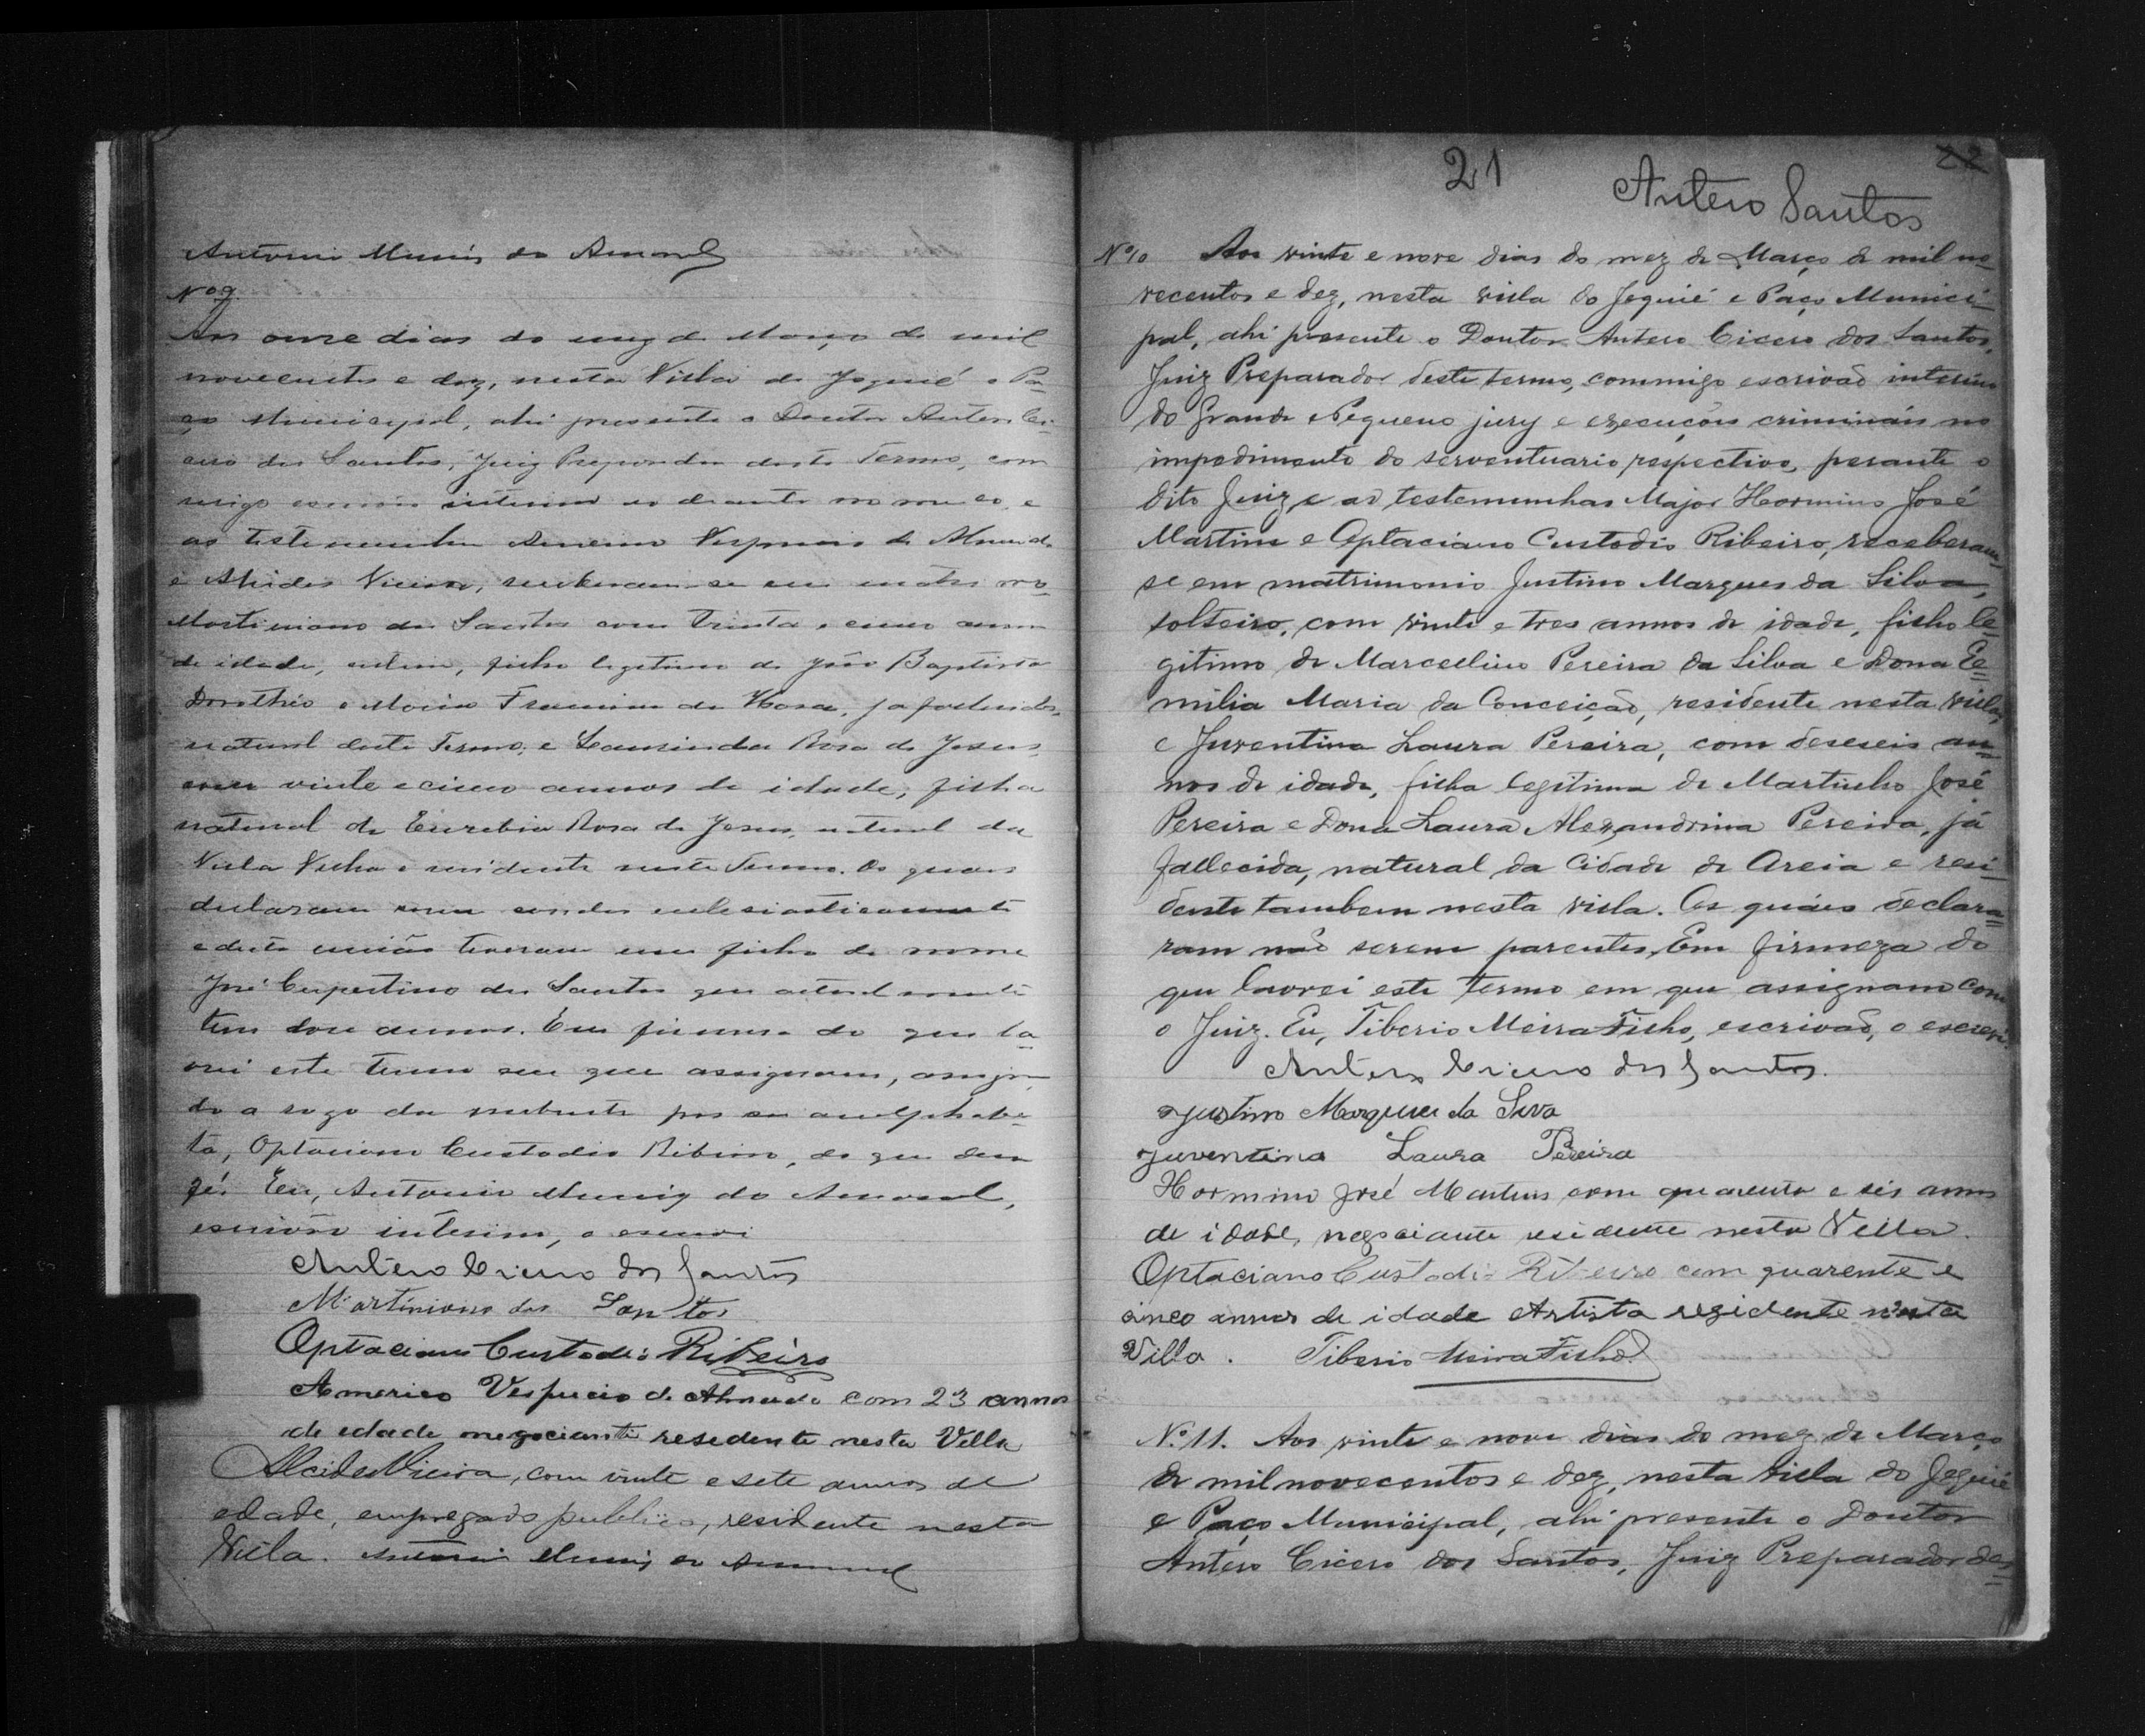 Antonio Muniz do Amaral
Nº 9.
Aos onze dias do mez de Março de mil
novecentos e dez, nesta Villa de Jequié e Pa-
ço Municipal, ahi presente o Doutor Antero Ci-
cero dos Santos, Juiz Preparador deste Termo, com
migo escrivão interino ao deante nomeado, e
as testemunhas Americo Vespucio de Almeida
e Alcides Vieira, receberam-se em matrimonio
Martiniano dos Santos com trinta e cinco annos
de idade, filho legitimo de João Baptista
Dorothéo e Maria da Hora, já fallecidos,
natural deste Termo, e Laurinda Rosa de Jesus,
com vinte e cinco annos de idade, filha
natural de Euzebia Rosa de Jesus, natural da
Villa Velha e residente neste Termo. Os quaes
declararam serem casados ecclesiasticamente
e desta união tiveram um filho de nome
José Cupertino dos Santos que actualmente
tem doze annos. Em firmeza do que la-
vrei este termo em que assignam, assignan-
do a rogo da nubente por ser analphabe-
ta, Optaciano Custodio Ribeiro, do que dou
fé. Eu, Antonio Muniz do Amaral,
escrivão interino, o escrevi
Antero Cicero dos Santos
Martiniano dos Santos
Optaciano Custodio Ribeiro
Americo Vespucio de Almeida com 23 annos
de edade negociante resedente nesta Villa
Alcides Vieira, com vinte e sete annos de
edade, empregado publico, residente nesta
Villa. Antonio Muniz do Amaral
21
22
Antero Santos
Nº 10 Aos vinte e nove dias do mez de Março de mil no-
vecentos e dez, nesta villa do Jequié e Paço Munici-
pal, ahi presente o Doutor Antero Cicero dos Santos,
Juiz Preparador deste termo, commigo escrivão interino
do Grande e Pequeno jury e execuções criminais no
impedimento do serventuario respectivo, perante o
dito Juiz e as testemunhas Major Hormino José
Martins e Optaciano Custodio Ribeiro, receberam-
se em matrimonio Justino Marques da Silva,
solteiro, com vinte e tres annos de idade, filho le-
gitimo de Marcellino Pereira da Silva e Dona E-
milia Maria da Conceição, residente nesta villa,
e Juventina Laura Pereira, com deseseis an-
nos de idade, filha legitima de Martinho José
Pereira e Dona Laura Alexandrina Pereira, já
fallecida, natural da Cidade de Areia e resi-
dente tambem nesta villa. Os quáes declara-
ram não serem parentes. Em firmeza do
que lavrei este termo em que assignam com
o Juiz. Eu, Tiberio Meira Filho, escrivão, o escrevi.
Antero Cicero dos Santos.
Justino Marques da Silva
Juventina Laura Pereira
Hormino José Martins com quarenta e seis annos
de idade, negociante residente nesta Villa.
Optaciano Custodio Ribeiro com quarente e
cinco annos de idade Artista residente nesta
Villa. Tiberio Meira Filho.
Nº 11. Aos vinte e nove dias do mez de Março
de mil novecentos e dez, nesta villa do Jequié
e Paço Municipal, ahi presente o Doutor
Antero Cicero dos Santos, Juiz Preparador des-